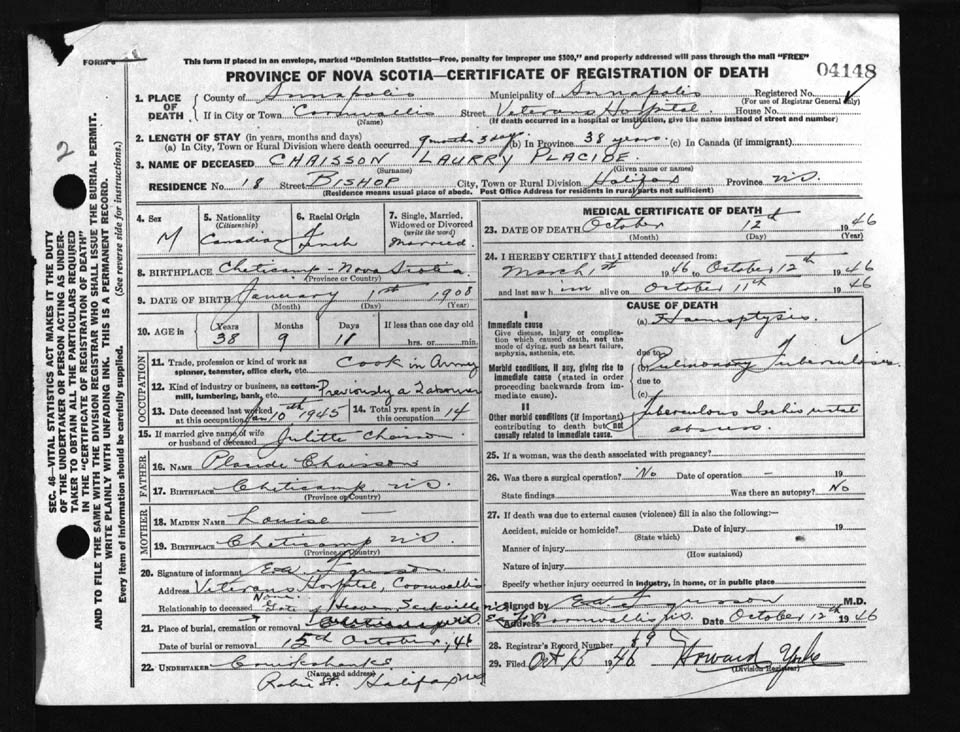 FORM 6
This form if placed in an envelope, marked "Dominion Statistics—Free, penalty for improper use $300," and properly addressed will pass through the mail "FREE"
PROVINCE OF NOVA SCOTIA—CERTIFICATE OF REGISTRATION OF DEATH
04148
2
SEC. 46—VITAL STATISTICS ACT MAKES IT THE DUTY
OF THE UNDERTAKER OR PERSON ACTING AS UNDER-
TAKER TO OBTAIN ALL THE PARTICULARS REQUIRED
IN THE "CERTIFICATE OF REGISTRATION OF DEATH"
AND TO FILE THE SAME WITH THE DIVISION REGISTRAR WHO SHALL ISSUE THE BURIAL PERMIT.
WRITE PLAINLY WITH UNFADING INK. THIS IS A PERMANENT RECORD.
Every item of information should be carefully supplied. (See reverse side for instructions.)
1. PLACE OF DEATH County of Annapolis Municipality of Annapolis Registered No.
(For use of Registrar General only)
If in City or Town Cornwallis Street Veterans Hospital House No.
(Name) (If death occurred in a hospital or institution, give the name instead of street and number)
2. LENGTH OF STAY (in years, months and days)
(a) In City, Town or Rural Division where death occurred 9 months 3 days (b) In Province 38 years. (c) In Canada (if immigrant)
3. NAME OF DECEASED CHAISSON LAURRY PLACIDE.
(Surname) (Given name or names)
RESIDENCE No. 18 Street BISHOP City, Town or Rural Division Halifax Province NS
(Residence means usual place of abode. Post Office Address for residents in rural parts not sufficient)
4. Sex M
5. Nationality (Citizenship) Canadian
6. Racial Origin French
7. Single, Married, Widowed or Divorced (write the word) Married.
8. BIRTHPLACE Cheticamp - Nova Scotia
(Province or Country)
9. DATE OF BIRTH January 1st 1908
(Month) (Day) (Year)
10. AGE in Years 38 Months 9 Days 11 If less than one day old hrs. or min.
OCCUPATION
11. Trade, profession or kind of work as spinner, teamster, office clerk, etc. Cook in Army
12. Kind of industry or business, as cotton-mill, lumbering, bank, etc. Previously a Labourer
13. Date deceased last worked at this occupation Jan 10th 1945 14. Total yrs. spent in this occupation 14
15. If married give name of wife or husband of deceased Julitte Chaisson
FATHER
16. NAME Chaisson
17. BIRTHPLACE Cheticamp NS.
(Province or Country)
MOTHER
18. MAIDEN NAME Louise
19. BIRTHPLACE Cheticamp NS.
(Province or Country)
20. Signature of informant
Address Veterans Hospital, Cornwallis
Relationship to deceased None
21. Place of burial, cremation or removal Gate of Heaven Sackville NS
Date of burial or removal 15th October, 46
22. UNDERTAKER Cruikshanks
(Name and address)
Robie St. Halifax NS
MEDICAL CERTIFICATE OF DEATH
23. DATE OF DEATH October 12th 1946
(Month) (Day) (Year)
24. I HEREBY CERTIFY that I attended deceased from:
March 1st 1946 to October 12th 1946
and last saw him alive on October 11th 1946
CAUSE OF DEATH
I
Immediate cause
Give disease, injury or complication which caused death, not the mode of dying, such as heart failure, asphyxia, asthenia, etc.
(a) Haemoptysis.
due to
Morbid conditions, if any, giving rise to immediate cause (stated in order proceeding backwards from immediate cause).
(b) Pulmonary Tuberculosis.
due to
(c)
II
Other morbid conditions (if important) contributing to death but not causally related to immediate cause.
Tuberculous Ischio rectal abscess.
25. If a woman, was the death associated with pregnancy?
26. Was there a surgical operation? No Date of operation — 19
State findings Was there an autopsy? No
27. If death was due to external causes (violence) fill in also the following:—
Accident, suicide or homicide? Date of injury 19
(State which)
Manner of injury
(How sustained)
Nature of injury
Specify whether injury occurred in industry, in home, or in public place
Signed by M.D.
Address Cornwallis NS. Date October 12th 1946
28. Registrar's Record Number 59
29. Filed Oct 15 1946 Howard Yorke
(Division Registrar)